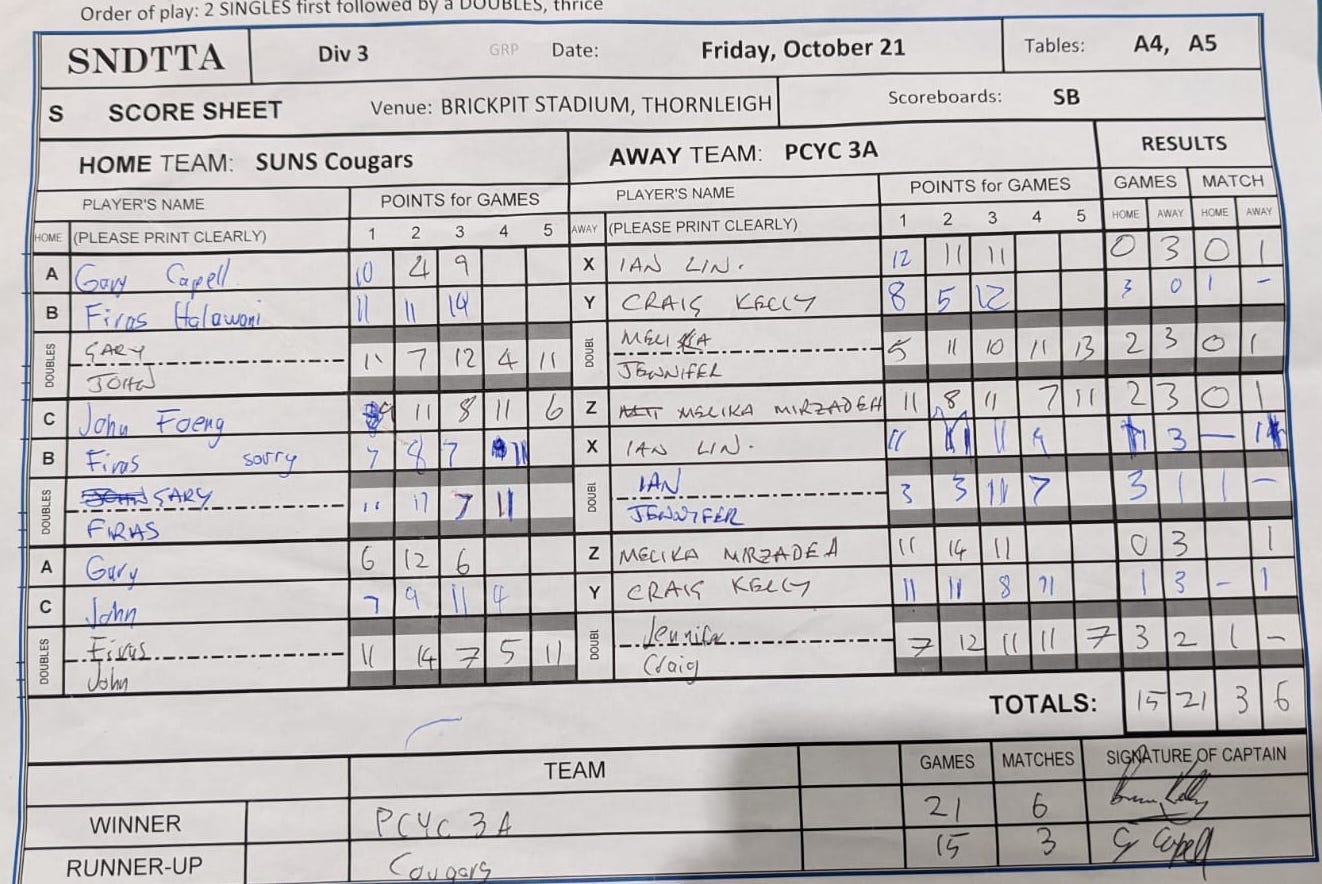 Order of play: 2 SINGLES first followed by a DOUBLES, thrice
SNDTTA Div 3 GRP Date: Friday, October 21 Tables: A4, A5
S SCORE SHEET Venue: BRICKPIT STADIUM, THORNLEIGH Scoreboards: SB
HOME TEAM: SUNS Cougars AWAY TEAM: PCYC 3A RESULTS
PLAYER'S NAME POINTS for GAMES PLAYER'S NAME POINTS for GAMES GAMES MATCH
HOME (PLEASE PRINT CLEARLY) 1 2 3 4 5 AWAY (PLEASE PRINT CLEARLY) 1 2 3 4 5 HOME AWAY HOME AWAY
A Gary Capell 10 4 9 X IAN LIN. 12 11 11 0 3 0 1
B Firas Halawani 11 11 14 Y CRAIG KELLY 8 5 12 3 0 1 -
DOUBLES GARY 11 7 12 4 11 DOUBL MELIKA 5 11 10 11 13 2 3 0 1
JOHN JENNIFER
C John Foeng 9 11 8 11 6 Z MELIKA MIRZADEH 11 8 11 7 11 2 3 0 1
B Firas sorry 7 8 7 11 X IAN LIN. 11 11 11 9 1 3 - 1
DOUBLES GARY 11 11 7 11 DOUBL IAN 3 3 11 7 3 1 1 -
FIRAS JENNIFER
A Gary 6 12 6 Z MELIKA MIRZADEH 11 14 11 0 3 1
C John 7 9 11 4 Y CRAIG KELLY 11 11 8 11 1 3 - 1
DOUBLES Firas 11 14 7 5 11 DOUBL Jennifer 7 12 11 11 7 3 2 1 -
John Craig
TOTALS: 15 21 3 6
TEAM GAMES MATCHES SIGNATURE OF CAPTAIN
WINNER PCYC 3A 21 6
RUNNER-UP Cougars 15 3 G Capell